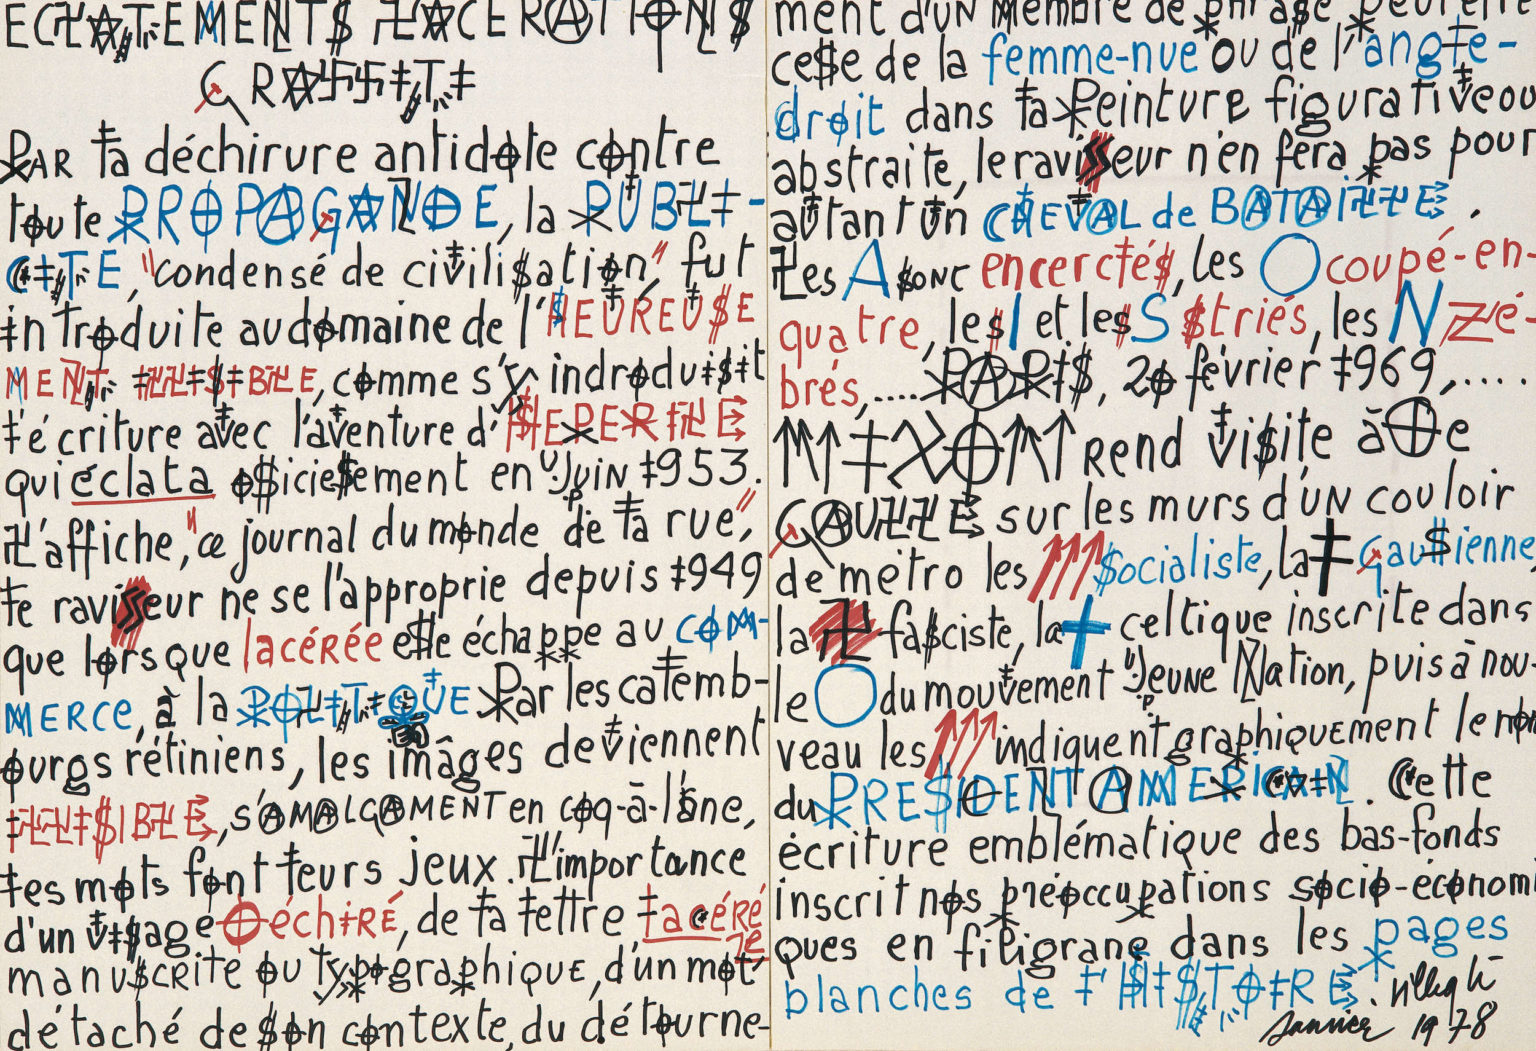 ECLATEMENTS LACERATIONS
GRASSITE
PAR la déchirure antidote contre
toute PROPAGANDE, la PUBLI-
CITE, "condensé de civilisation" fut
introduite au domaine de l'HEUREUSE
MENT ILLISIBLE, comme s'y indroduisit
l'écriture avec l'aventure d'HEPERILE
qui éclata officiellement en Juin 1953.
L'affiche, "ce journal du monde de la rue",
le ravisseur ne se l'approprie depuis 1949
que lorsque lacérée elle échappe au COM-
MERCE, à la POLITIQUE Par les calemb-
ourgs rétiniens, les images deviennent
ILLISIBLE, s'AMALGAMENT en coq-à-l'âne,
les mots font leurs jeux. L'importance
d'un visage DéchiRÉ, de la lettre lacéré
manuscrite ou typographique, d'un mot
détaché de son contexte, du détourne-
ment d'un membre de phrase peut être
celle de la femme-nue ou de l'angle-
droit dans la Peinture figurative ou
abstraite, le ravisseur n'en fera pas pour
autant un CHEVAL de BATAILLE.
Les A sont encerclés, les O coupé-en-
quatre, les I et les S striés, les N zé-
brés, ..... PARIS, 20 février 1969, .....
NIXON rend visite à De
GAULLE sur les murs d'un couloir
de métro les socialiste, la Gaullienne,
la fasciste, la celtique inscrite dans
le O du mouvement Jeune Nation, puis à nou-
veau les indiquent graphiquement le nom
du PRESIDENT AMERICAIN. Cette
écriture emblématique des bas-fonds
inscrit nos préoccupations socio-économi
ques en filigrane dans les pages
blanches de l'HISTOIRE. Villeglé
Janvier 1978